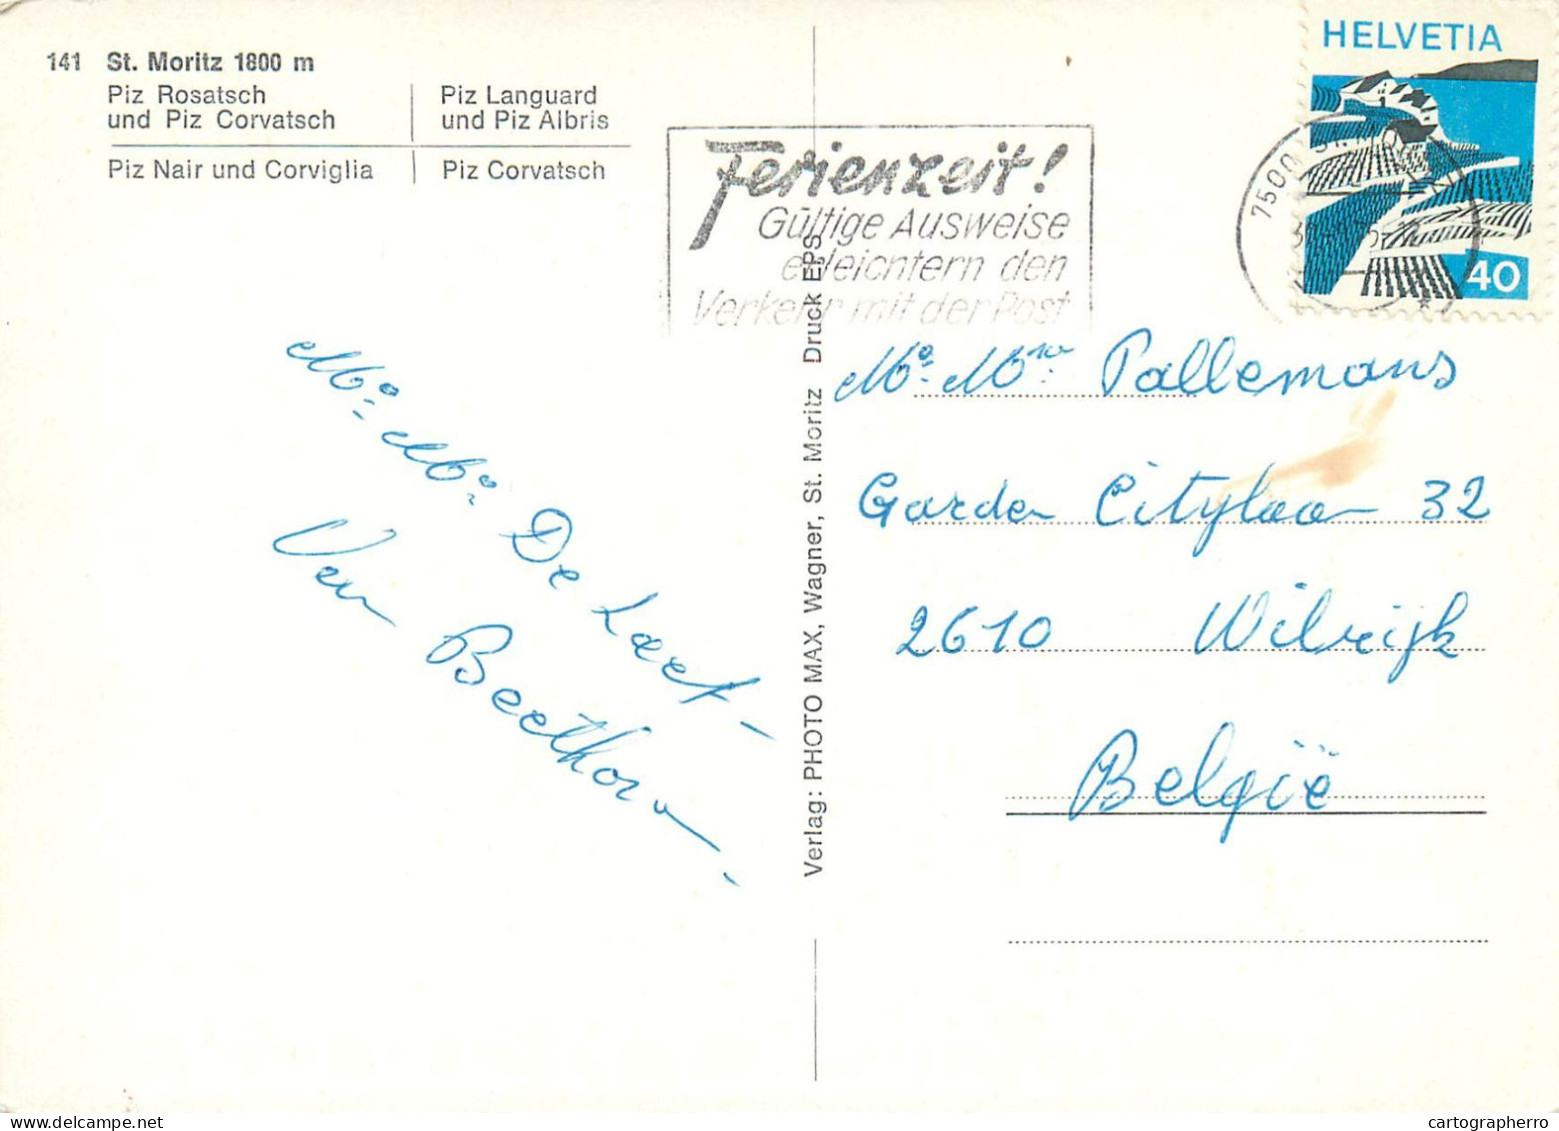 141 St. Moritz 1800 m
Piz Rosatsch
und Piz Corvatsch
Piz Languard
und Piz Albris
Piz Nair und Corviglia
Piz Corvatsch
Ferienzeit!
Gültige Ausweise
erleichtern den
Verkehr mit der Post
HELVETIA
40
7500 ST.
Verlag: PHOTO MAX, Wagner, St. Moritz Druck EPS
De Laet -
Van Beethoven -
Pallemans
Garden Citylaan 32
2610 Wilrijk
België
www.delcampe.net
cartographerro